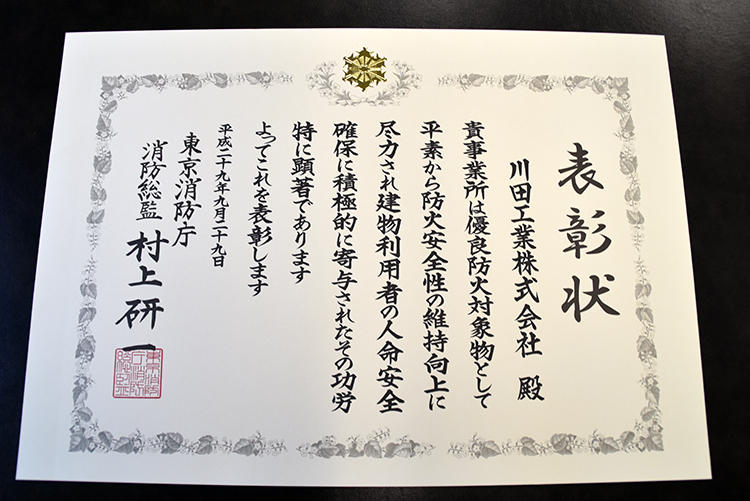 表彰状
川田工業株式会社 殿
貴事業所は優良防火対象物として
平素から防火安全性の維持向上に
尽力され建物利用者の人命安全
確保に積極的に寄与されたその功労
特に顕著であります
よってこれを表彰します
平成二十九年九月二十九日
東京消防庁
消防総監 村上研一